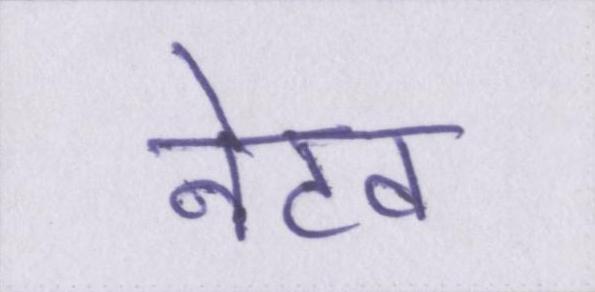 नेटव